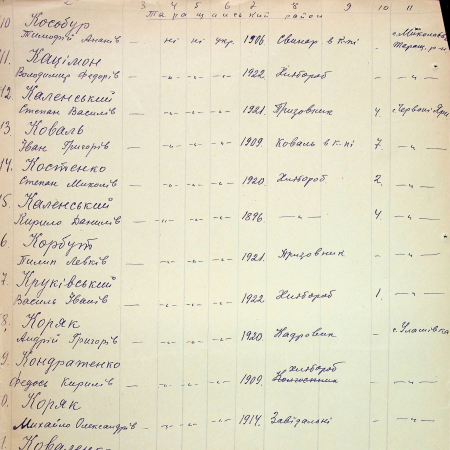 3 4 5 6 7 8 9 10 11
Таращанський район
10 Кособур
Тимофій Ананів — ні ні укр. 1906 Свинар в к-пі с. Миколаївка
Таращ. р-н
11. Кацімон
Володимир Федорів — -"- -"- -"- 1922. Хлібороб — -"-
12. Каленський
Степан Василів — -"- -"- -"- 1921. Призовник 4. Червоні Яри
13. Коваль
Іван Григорів — -"- -"- -"- 1909. Коваль в к-пі 7. — -"-
14. Костенко
Степан Миколів — -"- -"- -"- 1920 Хлібороб 2. — -"-
15. Каленський
Кирило Данилів — -"- -"- -"- 1896 — -"- — 4 — -"- —
6. Корбут
Пилип Левків — -"- -"- -"- 1921. Призовник - — -"- —
7. Круківський
Василь Іванів — -"- -"- -"- 1922. Хлібороб 1. — -"- —
8. Коряк
Андрій Григорів — -"- -"- -"- 1920 Кадровик - с. Улашівка
9. Кондратенко
хлібороб
Федось Кирилів — -"- -"- -"- 1909. - — -"- —
0. Коряк
Михайло Олександрів — -"- -"- -"- 1914. Завідальні - — -"- —
1. Коваленко